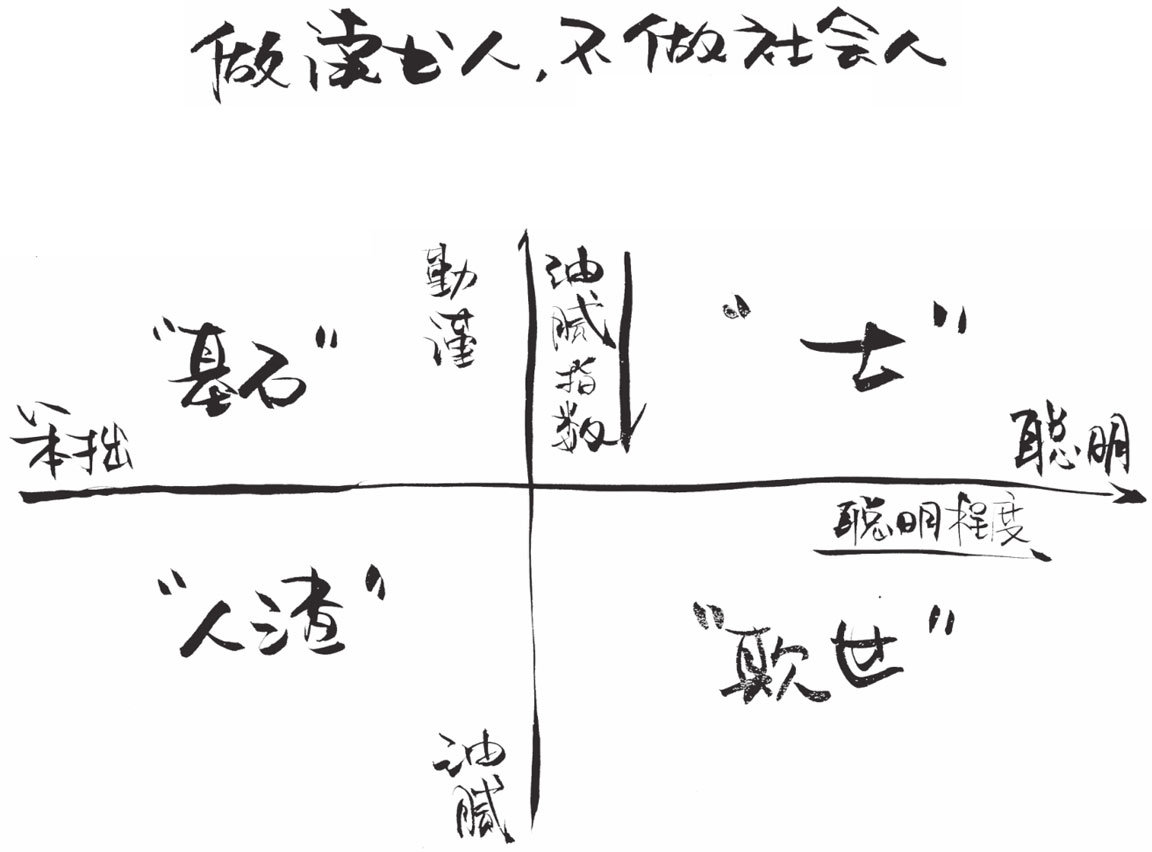 做读书人,不做社会人
勤谨
油腻指数
"基石"
"士"
笨拙
聪明
聪明程度
"人渣"
"欺世"
油腻